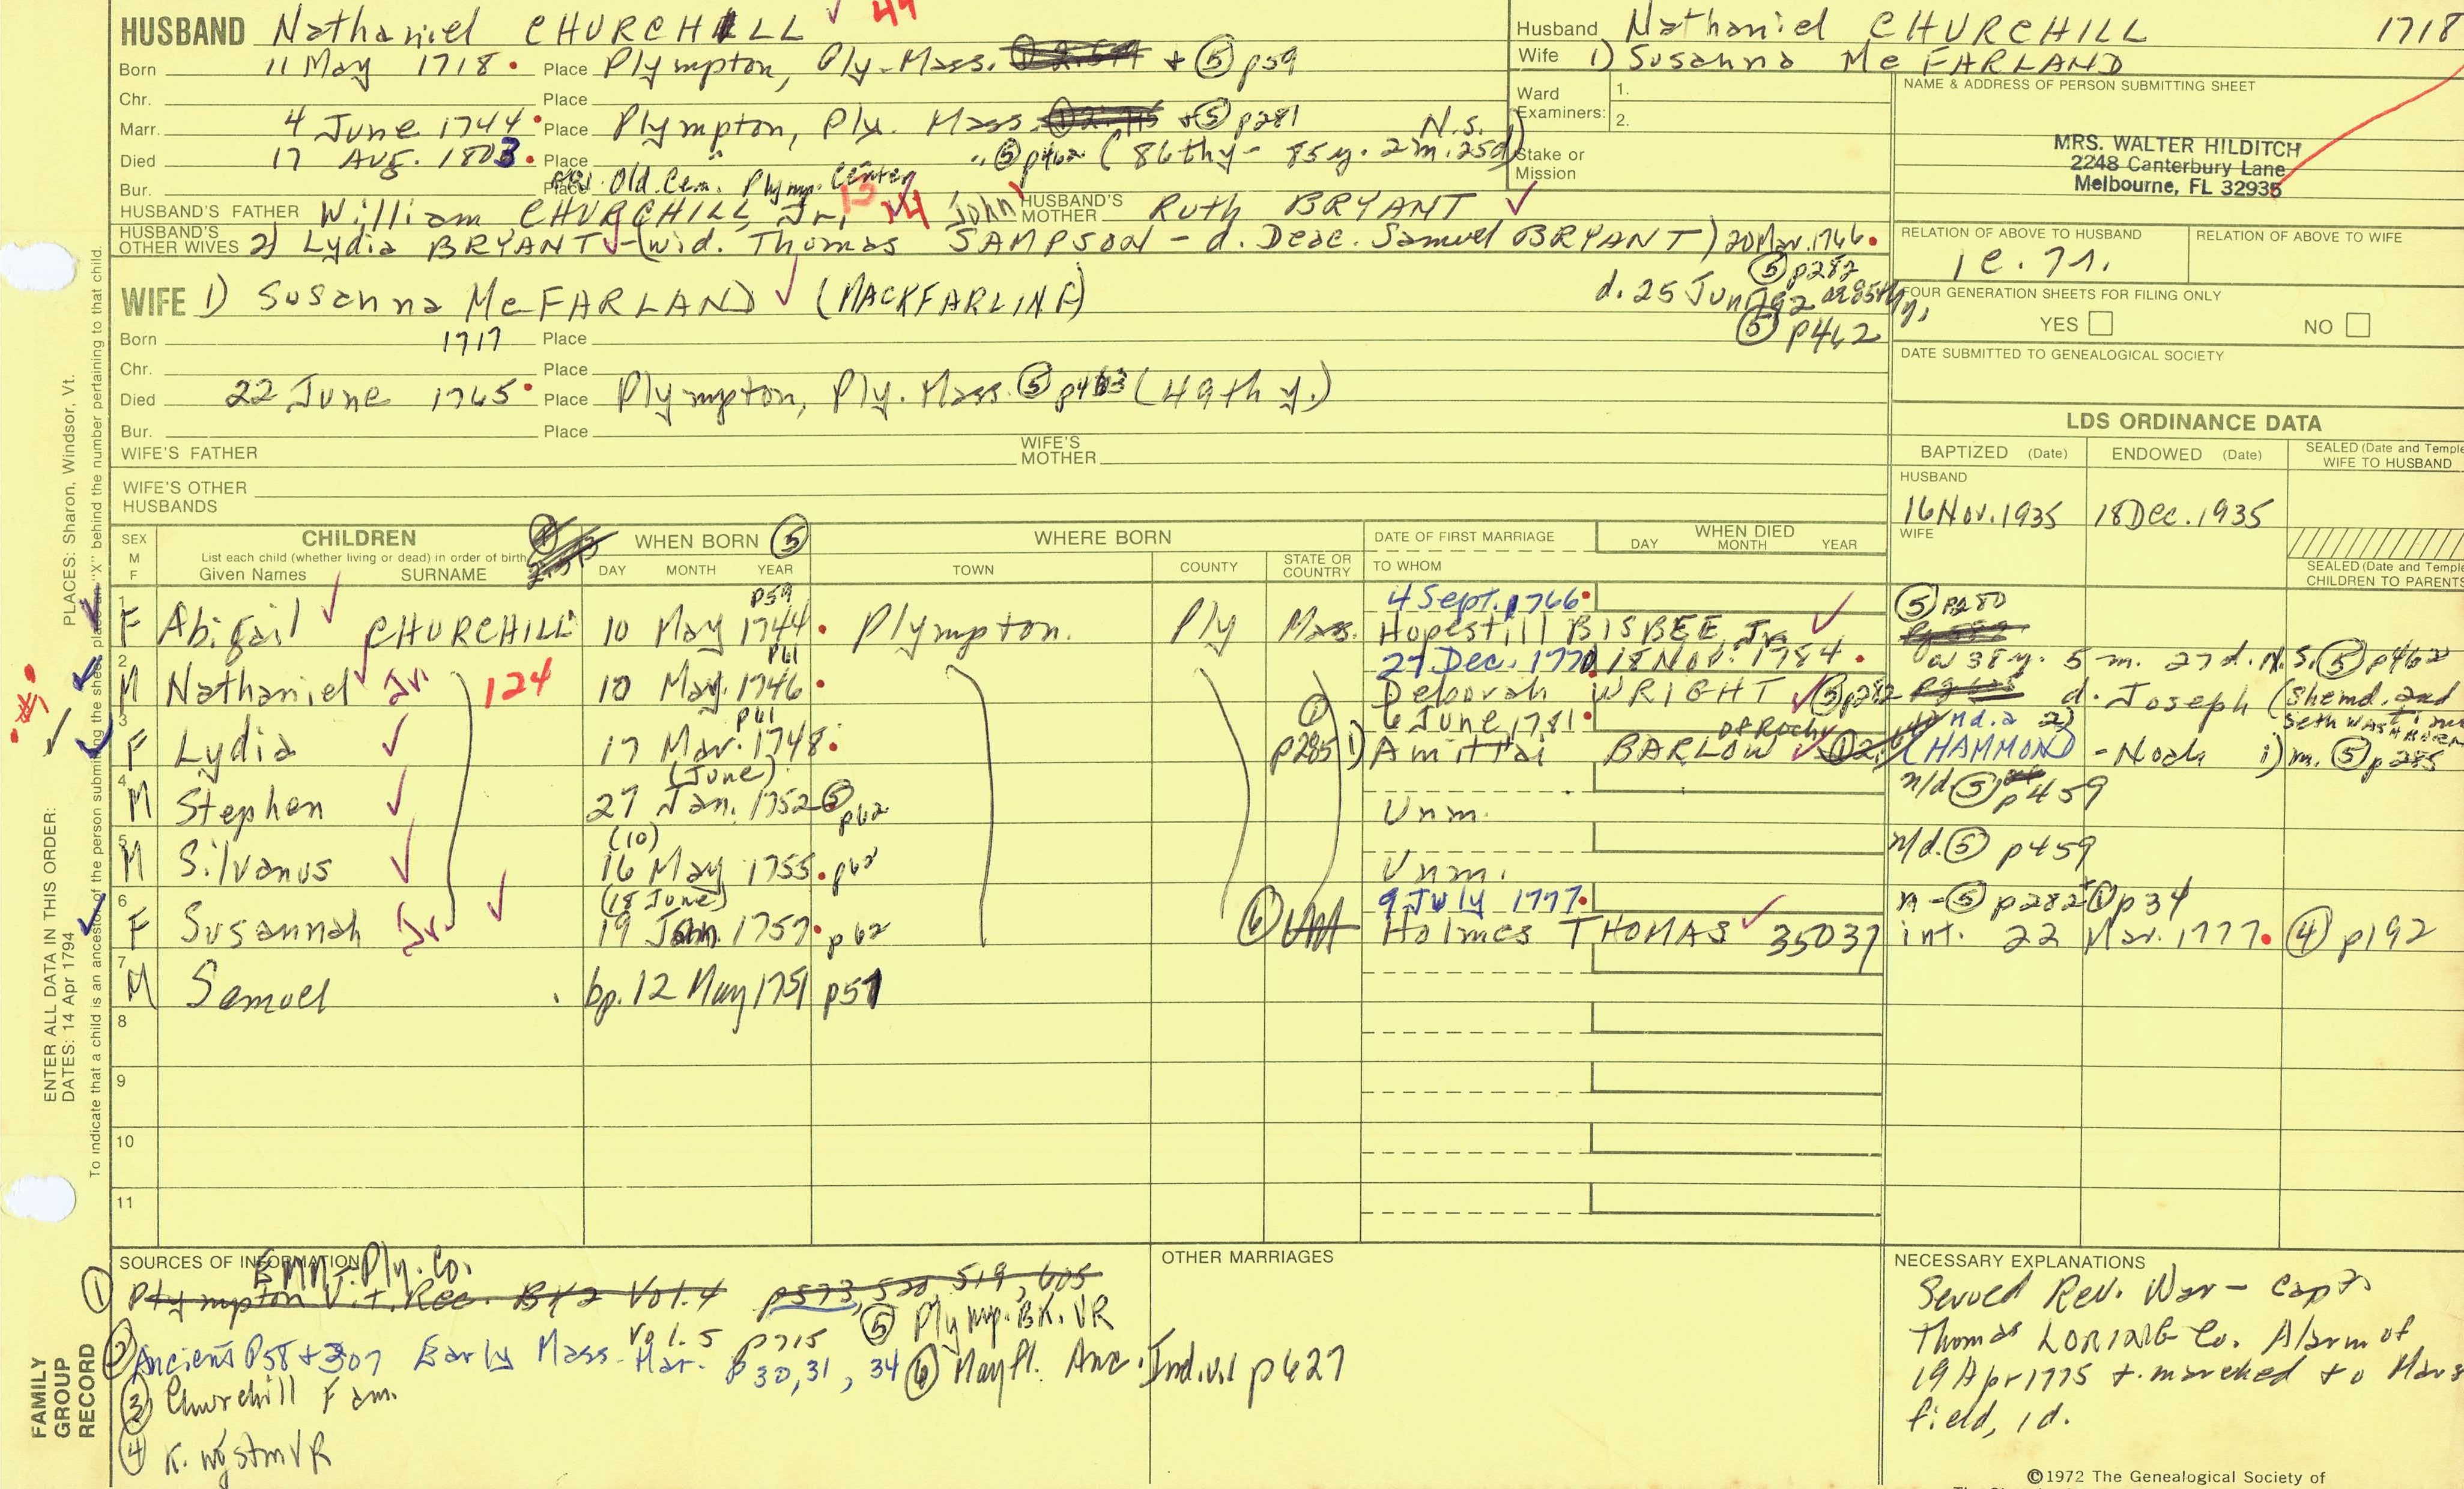 HUSBAND Nathaniel CHURCHILL 44
Born 11 May 1718. Place Plympton, Ply. Mass. + ⑤ p59
Chr. Place
Marr. 4 June 1744. Place Plympton, Ply. Mass. + ⑤ p281 N.S.
Died 17 Aug. 1803. Place " " ⑤ p462 (86thy - 85y. 2m. 25d)
Bur. Place Old. Cem. Plymp. Center
HUSBAND'S FATHER William CHURCHILL, Jr. John HUSBAND'S MOTHER Ruth BRYANT
HUSBAND'S OTHER WIVES 2) Lydia BRYANT - (wid. Thomas SAMPSON - d. Deac. Samuel BRYANT) 20 Mar. 1766.
⑤ p282
WIFE 1) Susanna McFARLAND (MACKFARLINE) d. 25 Jun 1792
⑤ p462
Born 1717 Place
Chr. Place
Died 22 June 1765. Place Plympton, Ply. Mass. ⑤ p463 (49th y.)
Bur. Place
WIFE'S FATHER WIFE'S MOTHER
WIFE'S OTHER HUSBANDS
Husband Nathaniel CHURCHILL 1718
Wife 1) Susanna McFARLAND
Ward Examiners: 1. 2.
Stake or Mission
NAME & ADDRESS OF PERSON SUBMITTING SHEET
MRS. WALTER HILDITCH
2248 Canterbury Lane
Melbourne, FL 32935
RELATION OF ABOVE TO HUSBAND RELATION OF ABOVE TO WIFE
FOUR GENERATION SHEETS FOR FILING ONLY
YES NO
DATE SUBMITTED TO GENEALOGICAL SOCIETY
LDS ORDINANCE DATA
BAPTIZED (Date) ENDOWED (Date) SEALED (Date and Temple) WIFE TO HUSBAND
HUSBAND
16 Nov. 1935 18 Dec. 1935
WIFE
SEALED (Date and Temple) CHILDREN TO PARENTS
SEX M F CHILDREN WHEN BORN ⑤ WHERE BORN DATE OF FIRST MARRIAGE WHEN DIED
List each child (whether living or dead) in order of birth
Given Names SURNAME DAY MONTH YEAR TOWN COUNTY STATE OR COUNTRY TO WHOM DAY MONTH YEAR
p59 4 Sept. 1766. ⑤ p280
1 F Abigail CHURCHILL 10 May 1744. Plympton. Ply Mass. Hopestill BISBEE, Jr.
p61 27 Dec. 1770 18 Nov. 1784. 38 y. 5 m. 27 d. N.S. ⑤ p462
2 M Nathaniel Jr. 124 10 May 1746. Deborah WRIGHT ⑤ p282 d. Joseph (She md. 2nd Seth WASHBURN
p61 6 June, 1781. of Roch
3 F Lydia 17 Mar. 1748. p285 1) Amittai BARLOW (HAMMOND) - Noah 1) m. ⑤ p285
(June) n/d ⑤ p459
4 M Stephen 27 Jan. 1752 ⑤ p62 Unm.
(10) n/d. ⑤ p459
5 M Silvanus 16 May 1755. p62 Unm.
(18 June) 9 July 1777. ⑤ p282 p34
6 F Susannah Jr. 19 Jan. 1757. p62 ⑥ Holmes THOMAS 35037 int. 22 Mar. 1777. ④ p192
7 M Samuel bp. 12 May 1751 p57
8
9
10
11
SOURCES OF INFORMATION
① Plympton Vit. Rec. Bk 2 Vol. 4 p573, 520, 519, 605
Ply. Co.
② Ancient P58 + 307 Early Mass. Mar. p30, 31, 34
Vol. 5 p715
③ Churchill Fam.
④ K. VR
⑤ Plymp. BK. VR
⑥ Mayfl. Anc. Ind. p627
OTHER MARRIAGES
NECESSARY EXPLANATIONS
Served Rev. War - Capt.
Thomas LORING Co. Alarm of
19 Apr 1775 + marched to Marsh
field, 1d.
©1972 The Genealogical Society of
PLACES: Sharon, Windsor, Vt.
ENTER ALL DATA IN THIS ORDER:
DATES: 14 Apr 1794
To indicate that a child is an ancestor of the person submitting the sheet, place an "X" behind the number pertaining to that child.
FAMILY GROUP RECORD